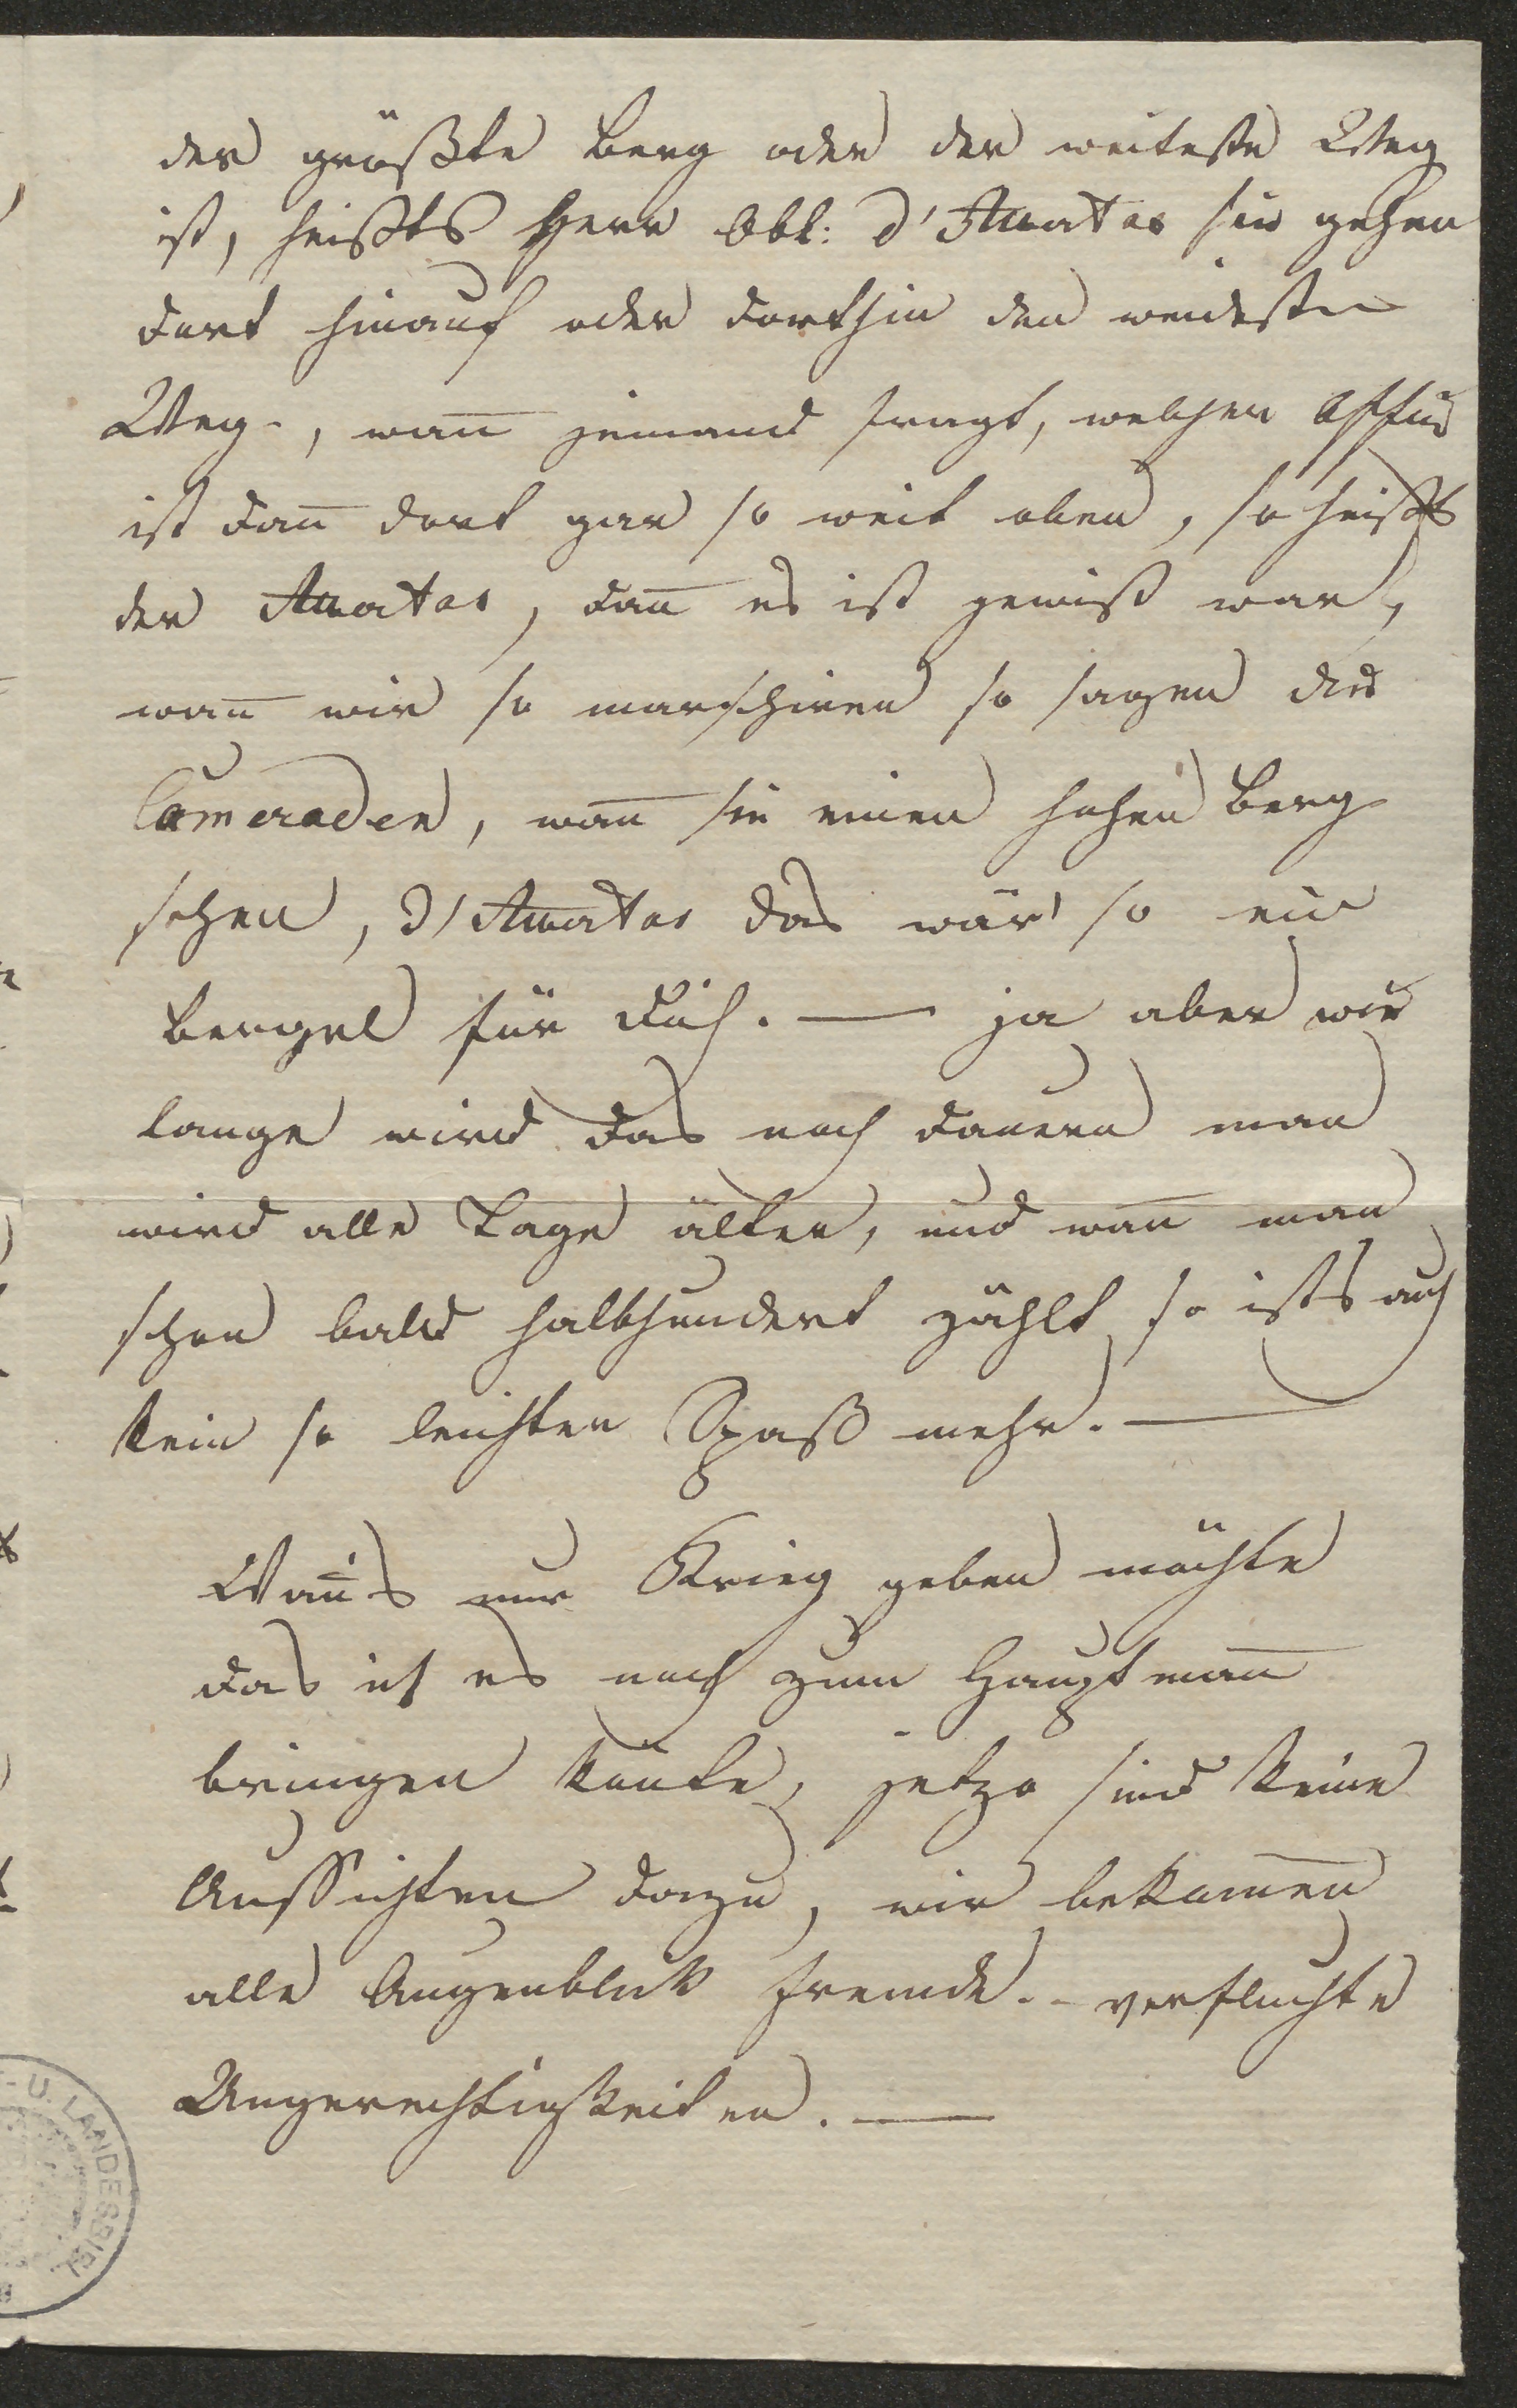 der größte Berg oder der weiteste Weg
ist, heißts Herr Obl: d'Amatas sie gehen
dort hinauf oder dorthin den weidesten
Weg-, wan̄ jemand fragt, welcher Offic
ist dan̄ dort gar so weit oben, so heißts
der Amatas, dan̄ es ist gewiß war,
wan̄ wir so marschiren so sagen die
Cameraden, wan̄ sie einen hohen Berg
sehen, d'Amatas das wär' so ein
Bergel für dich. — ja aber wie
lange wird das noch dauern man
wird alle Tage älter, und wan̄ man
schon bald halbhundert zählt so ists auch
kein so leichter Spaß mehr. —
Wan̄'s nur Krieg geben möchte
das ich es noch zum Hauptman̄
bringen kön̄te, jetzo sind keine
Aussichten dazu, wir bekom̄en
alle Augenblick Fremde. - verfluchte
Ungerechtigkeiten. —
- U. LANDESBIBL